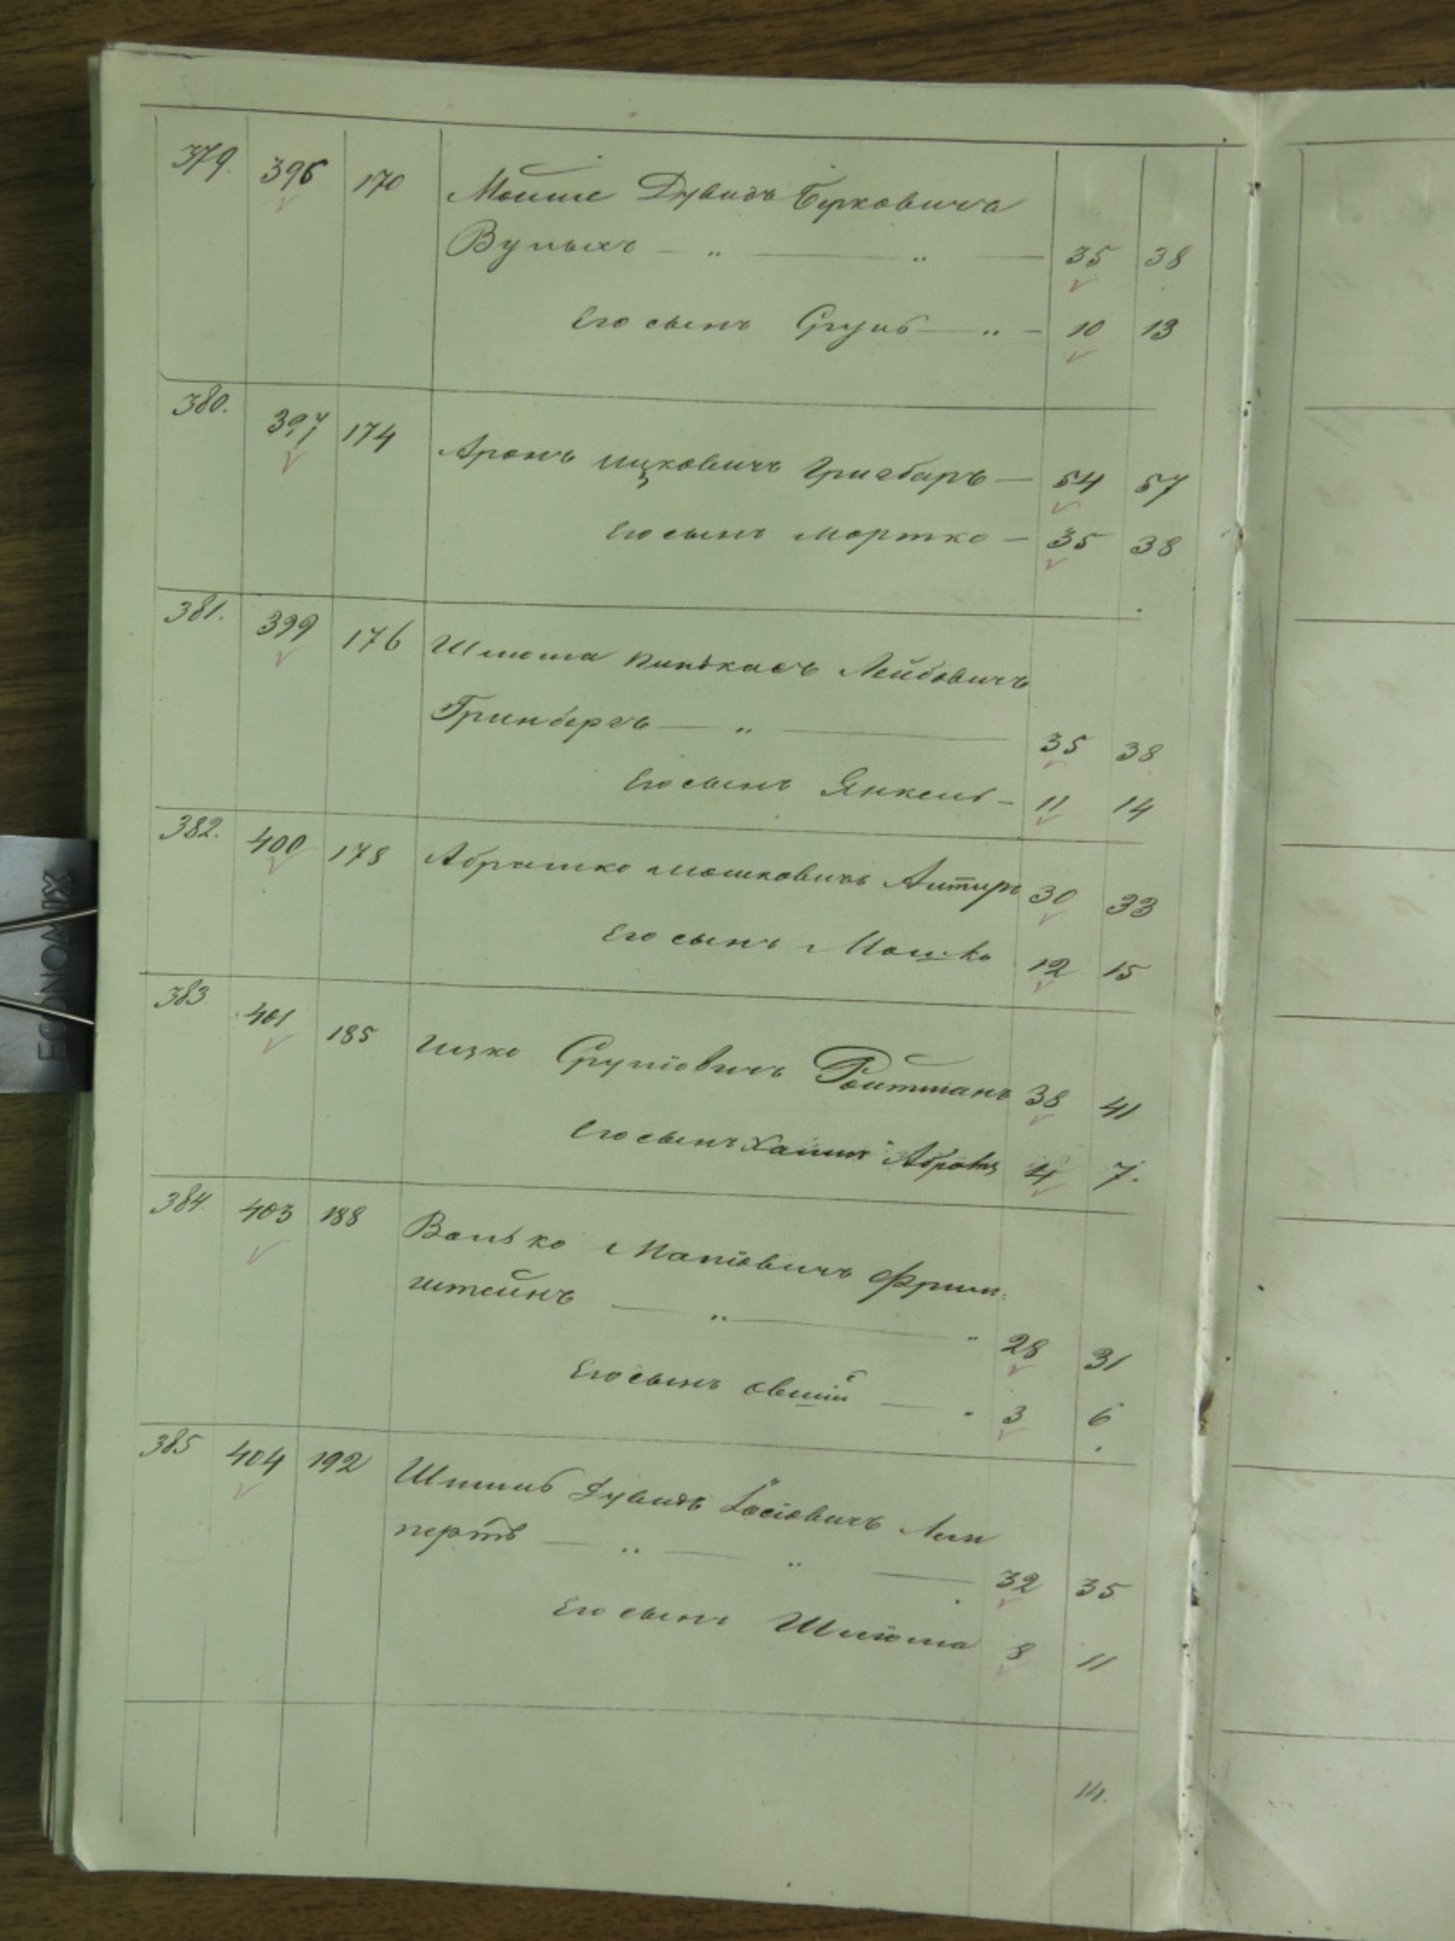 379. 396 170 Мошие Дувидъ Берковича
Вулыхъ — " — " — 35 38
Его сынъ Сруль — " — 10 13
380. 397 174 Аронъ Ицковичъ — 54 57
Его сынъ Мортко — 35 38
381. 399 176 Шлиома Пинькасъ Лейбовичъ
Гринбергъ — " — 35 38
Его сынъ Янкель — 11 14
382. 400 178 Абрамко Мошковичъ 30 33
Его сынъ Мошко 12 15
383 401 185 Ицко Срулиовичъ Роитманъ 38 41
Его сынъ Хаимъ Абрамъ 4 7.
384. 403 188 Волько Фрим:
штейнъ — " — " 28 31
Его сынъ Овшiй — " 3 6
385 404 192 Шмиль Дувидъ Iосiовичъ Лем
пертъ — " — " — 32 35
Его сынъ Шлиома 8 11
14.
ECONOMIX